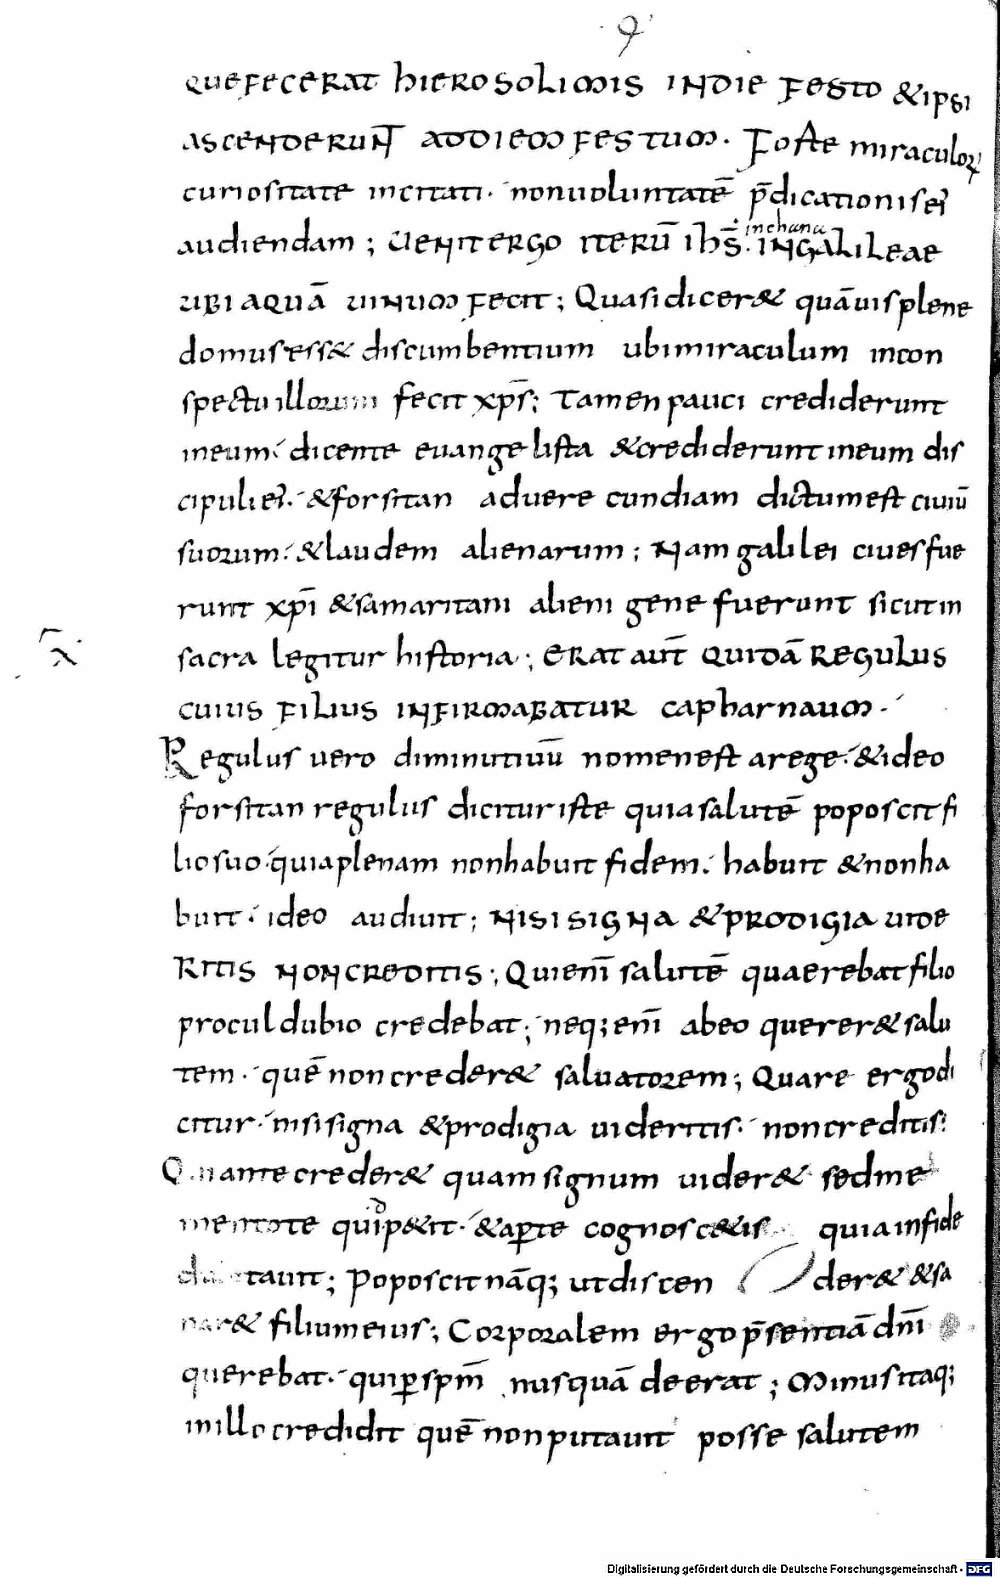 9
QUE FECERAT hIEROSOLIMIS IN DIE FESTO & IPSI
ASCENDERUNT AD DIEM FESTUM. Forte miraculoꝝ
curiositate incitati. non voluntatē p̄dicationis ei'
audiendam; UENIT ERGO ITERŪ IħS̄. IN GALILEAE
in chana
UBI AQUĀ UINUM FECIT; Quasi diceret quāuis plene
domus ess& discumbentium ubi miraculum in con
spectu illorum fecit xp̄s; Tamen pauci crediderunt
in eum. dicente euangelista & crediderunt in eum dis
cipuli ei'. & forsitan ad uerecundiam dictum est ciuiū
suorum. & laudem alienarum; Nam galilei ciues fue
runt xp̄i & samaritani alienigene fuerunt sicut in
sacra legitur historia; ERAT AUT̄ QUIDĀ REGULUS
CUIUS FILIUS INFIRMABATUR capharnaum.
Regulus uero diminutiuū nomen est a rege. & ideo
forsitan regulus dicitur iste quia salutē poposcit fi
lio suo. quia plenam non habuit fidem. habuit & non ha
buit. ideo audiuit; NISI SIGNA & PRODIGIA UIDE
RITIS NON CREDITIS; Qui eni̅ salutē quaerebat filio
procul dubio credebat; neq; eni̅ ab eo querer& salu
tem. quē non creder& saluatorem; Quare ergo di
citur. nisi signa & prodigia uideritis. non creditis.
Qui ante creder& quam signum uider& sed me
mentote quid p&iit. & aꝑte cognosc&is quia in fide
dubitauit; Poposcit nāq; ut discen der& & sa
nar& filium eius; Corporalem ergo p̄sentiā dn̄i
querebat. qui ꝑ spm̄ nusquā deerat; Minus itaq;
in illo credidit quē non putauit posse salutem
Digitalisierung gefördert durch die Deutsche Forschungsgemeinschaft - DFG